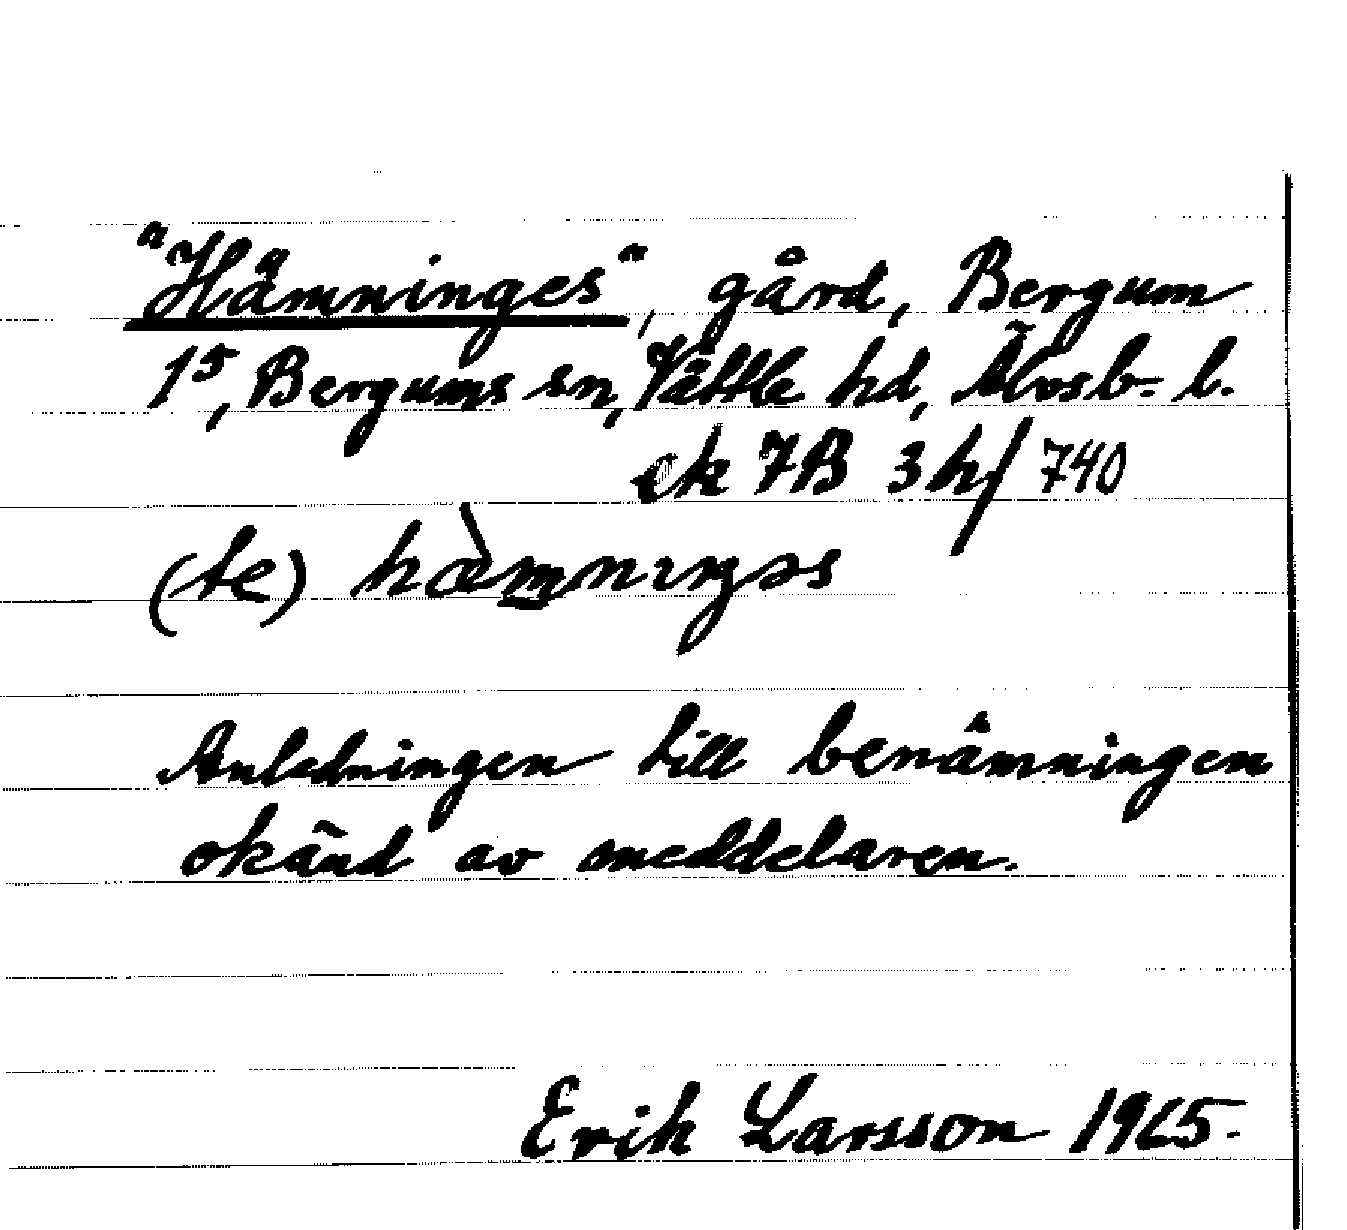 "Hämninges", gård, Bergum
1⁵, Bergums sn, Vättle hd, Älvsb. l.
ek 7B 3h/740
(te) hæ̀mnıŋəs
Anledningen till benämningen
okänd av meddelaren.
Erik Larsson 1965.